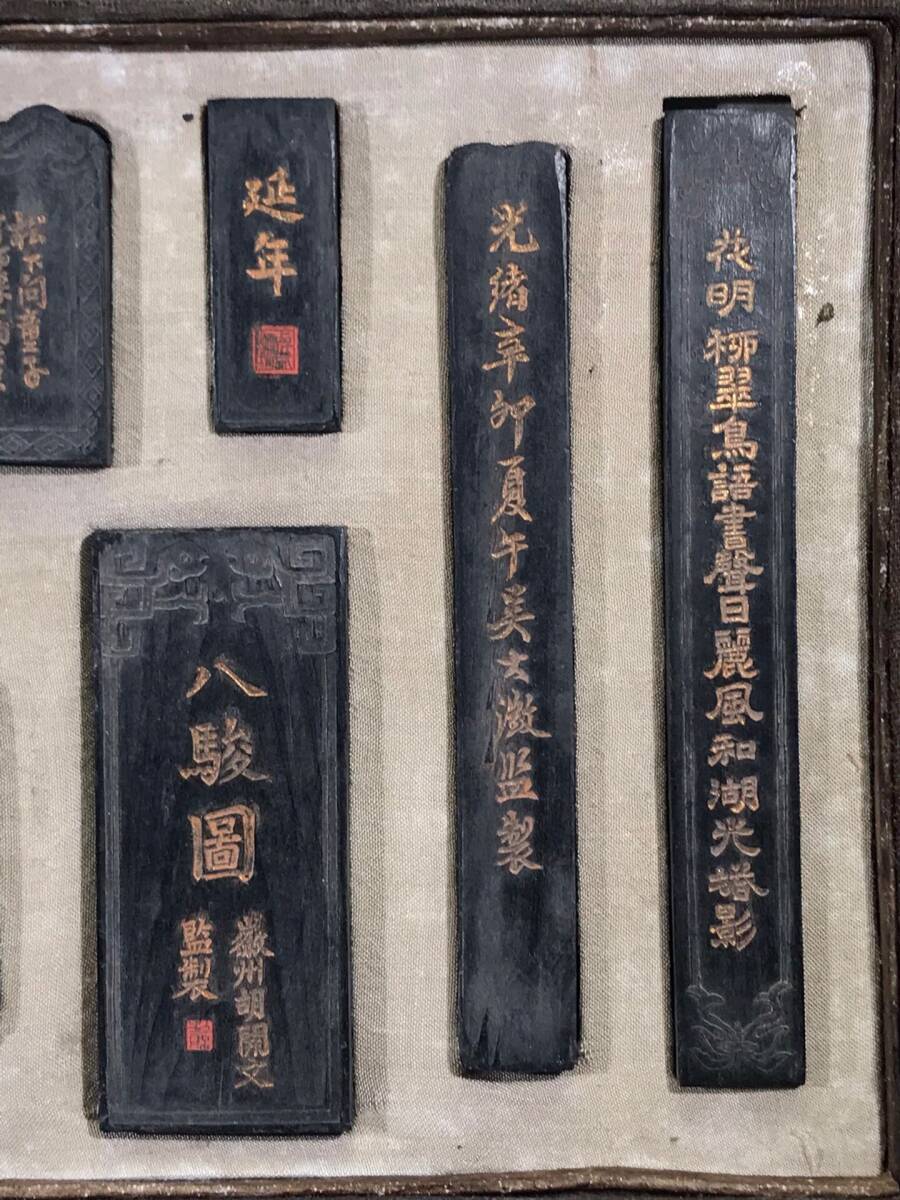 花明柳翠鳥語書聲日麗風和湖光墖影
光緒辛卯夏午吴大澂监製
延年
八駿圖
徽州胡開文
監製
松下問童子